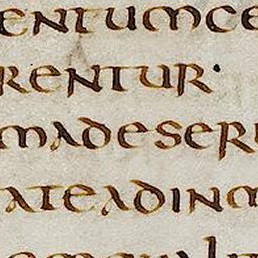 entumce
rentur·
madeserp
ateadinm